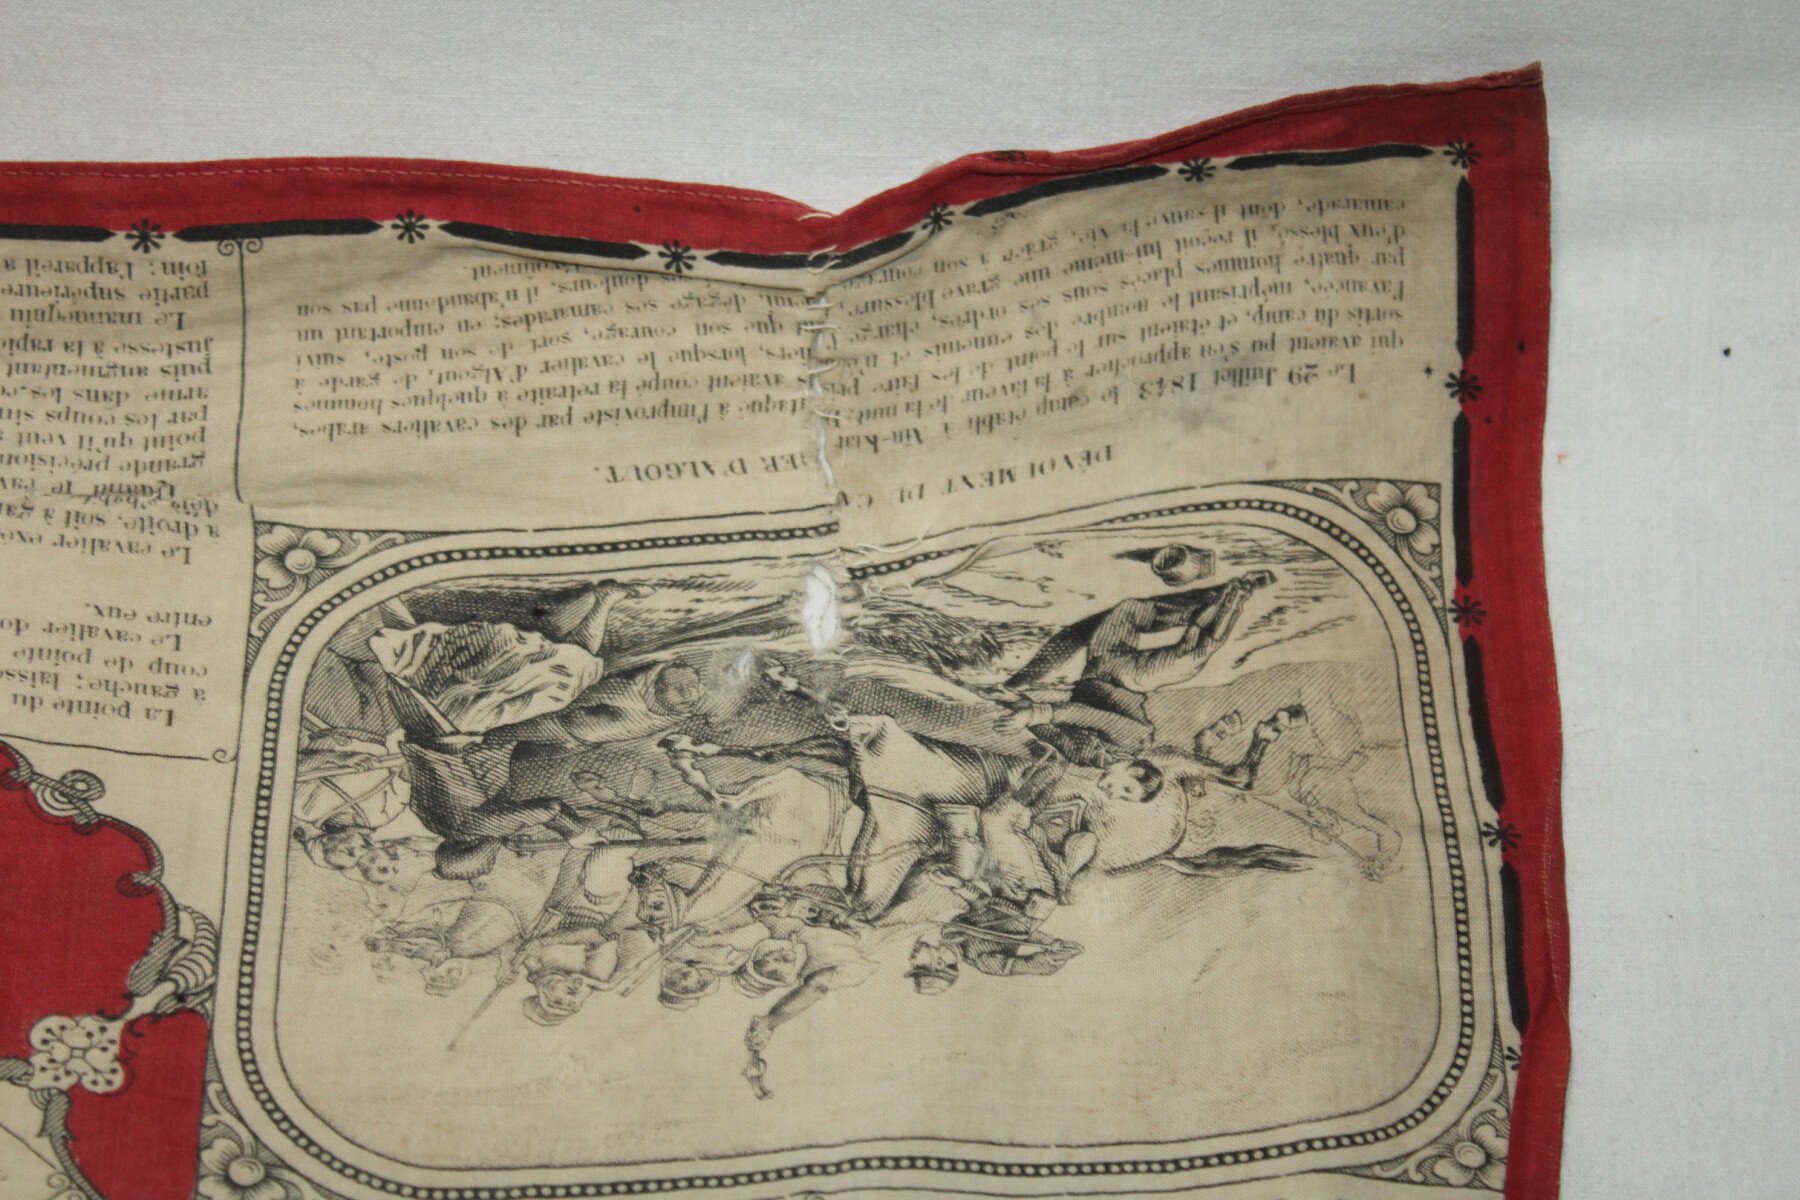 DÉVOUMENT DU CV IER D'ALGOUT.
Le 29 Juillet 1843, le camp établi à Aïn-Ktar attaqué à l'improviste par des cavaliers arabes,
qui avaient pu s'en approcher à la faveur de la nuit; ils avaient coupé la retraite à quelques hommes
sortis du camp, et étaient sur le point de les faire pris niers, lorsque le cavalier d'Algout, de garde à
l'avancée, méprisant le nombre des ennemis et n'é que son courage, sort de son poste, suivi
par quatre hommes placés sous ses ordres, charge, dégage ses camarades; en emportant un
d'eux blessé, il reçoit lui-même une grave blessure, douleurs, il n'abandonne pas son
camarade, dont il sauve la vie, grâce à son courage
La pointe du
à gauche; laisse
coup de pointe
Le cavalier do
entre eux.
Le cavalier exé
à droite, soit à ga
Quand le cav
grande précision
point qu'il veut a
par les coups sim
arme dans les co
puis augmentant
justesse à la rapi
Le mannequin
partie supérieure
foin; l'appareil a